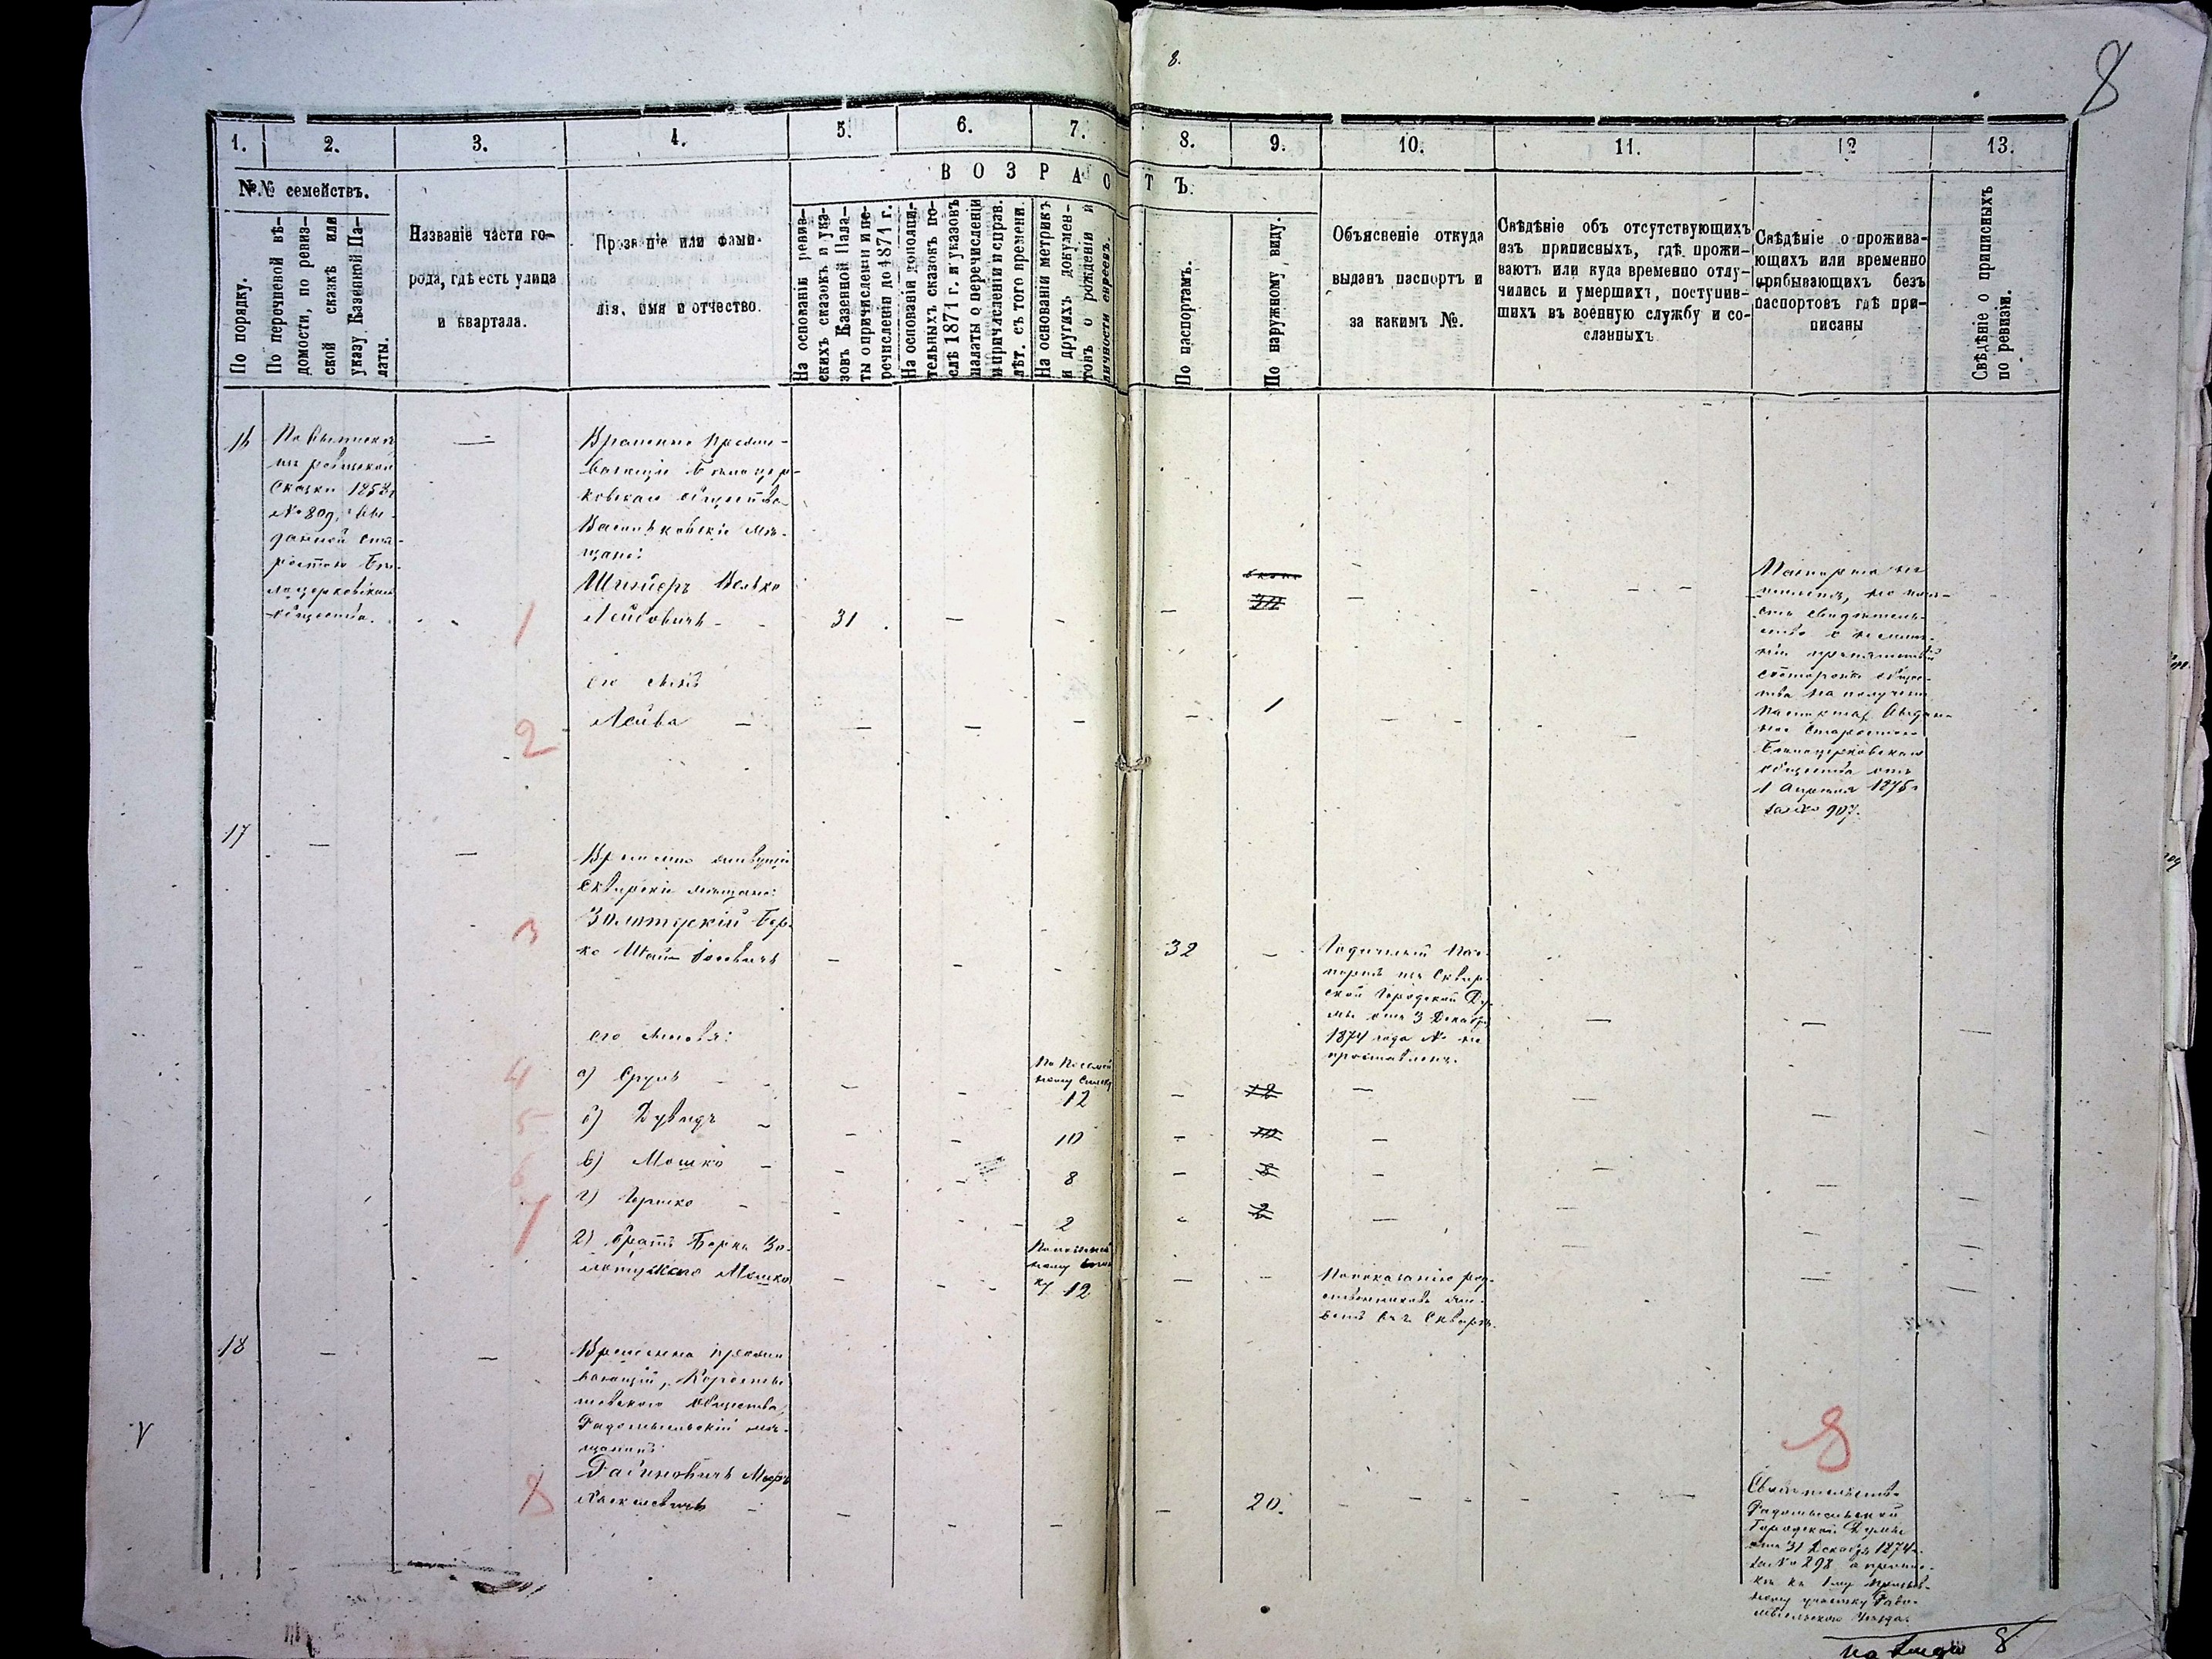 8.
8
1.
2.
3.
4.
5.
6.
7.
8.
9.
10.
11.
12
13.
№№ семействъ.
ВОЗРАСТЪ.
По порядку.
По перечневой вѣ-
домости, по ревиз-
ской сказкѣ или
указу Казенной Па-
латы.
Названіе части го-
рода, гдѣ есть улица
и квартала.
Прозваніе или фами-
лія, имя и отчество.
На основаніи ревиз-
скихъ сказокъ и ука-
зовъ Казенной Пала-
ты о причисленіи и пе-
речисленіи до 1871 г.
На основаніи дополни-
тельныхъ сказокъ по-
слѣ 1871 г. и указовъ
палаты о перечисленіи
и причисленіи и справ.
лѣт. съ того времени.
На основаніи метрикъ
и другихъ докумен-
товъ о рожденіи и
личности евреевъ.
По паспортамъ.
По наружному виду.
Объясненіе откуда
выданъ паспортъ и
за какимъ №.
Свѣдѣніе объ отсутствующихъ
изъ приписныхъ, гдѣ прожи-
ваютъ или куда временно отлу-
чились и умершихъ, поступив-
шихъ въ военную службу и со-
сланныхъ
Свѣдѣніе о прожива-
ющихъ или временно
прибывающихъ безъ
паспортовъ гдѣ при-
писаны
Свѣдѣніе о приписныхъ
по ревизіи.
16
ревизской
Сказки 1858
№ 809, вы-
данной Ста-
ростою Бѣ-
лоцерковскаго
общества.
Временно прожи-
вающіе Бѣлоцер-
ковскаго общества
Васильковскіе мѣ-
щане:
Шнайеръ Велько
1
Лейбовичъ
31
30
его сынъ
2
Лейба
1
Паспорта не
имѣетъ, но
есть свидѣтель-
ство о неимѣ-
ніи препятствій
со стороны обще-
ства на полученіе
паспорта, выдан-
ное Старостою
Бѣлоцерковскаго
общества отъ
1 Апрѣля 1875
за № 907.
17
Временно живущіе
Сквирскіе мѣщане:
3
Золотуский Бер-
ко
32
Годичный Пас-
портъ изъ Сквир-
ской Городской Ду-
мы отъ 3 Декабря
1874 года № не
проставленъ.
его сыновья:
4
а) Сруль
По Посемей
ному Списку
12
12
5
б) Дувидъ
10
10
6
в) Мошко
8
8
7
г) Гершко
2
2
2) братъ Берка Зо-
лотускаго Мошко
По посемей
ному спис
ку 12
По показанію род-
ственниковъ жи-
ветъ въ г. Сквирѣ.
18
Временно прожи
вающій, Коросты-
шевскаго Общества,
Радомысльскій мѣ-
щанинъ
8
Рабиновичъ
Хаскелевичъ
20.
8
Свидѣтельство
Радомысльской
Городской Думы
отъ 31 Декабря 1874 г.
за № 298 о припис-
кѣ къ 1му призыв-
ному участку Радо-
мысльскаго Уѣзда.
На лицо 8